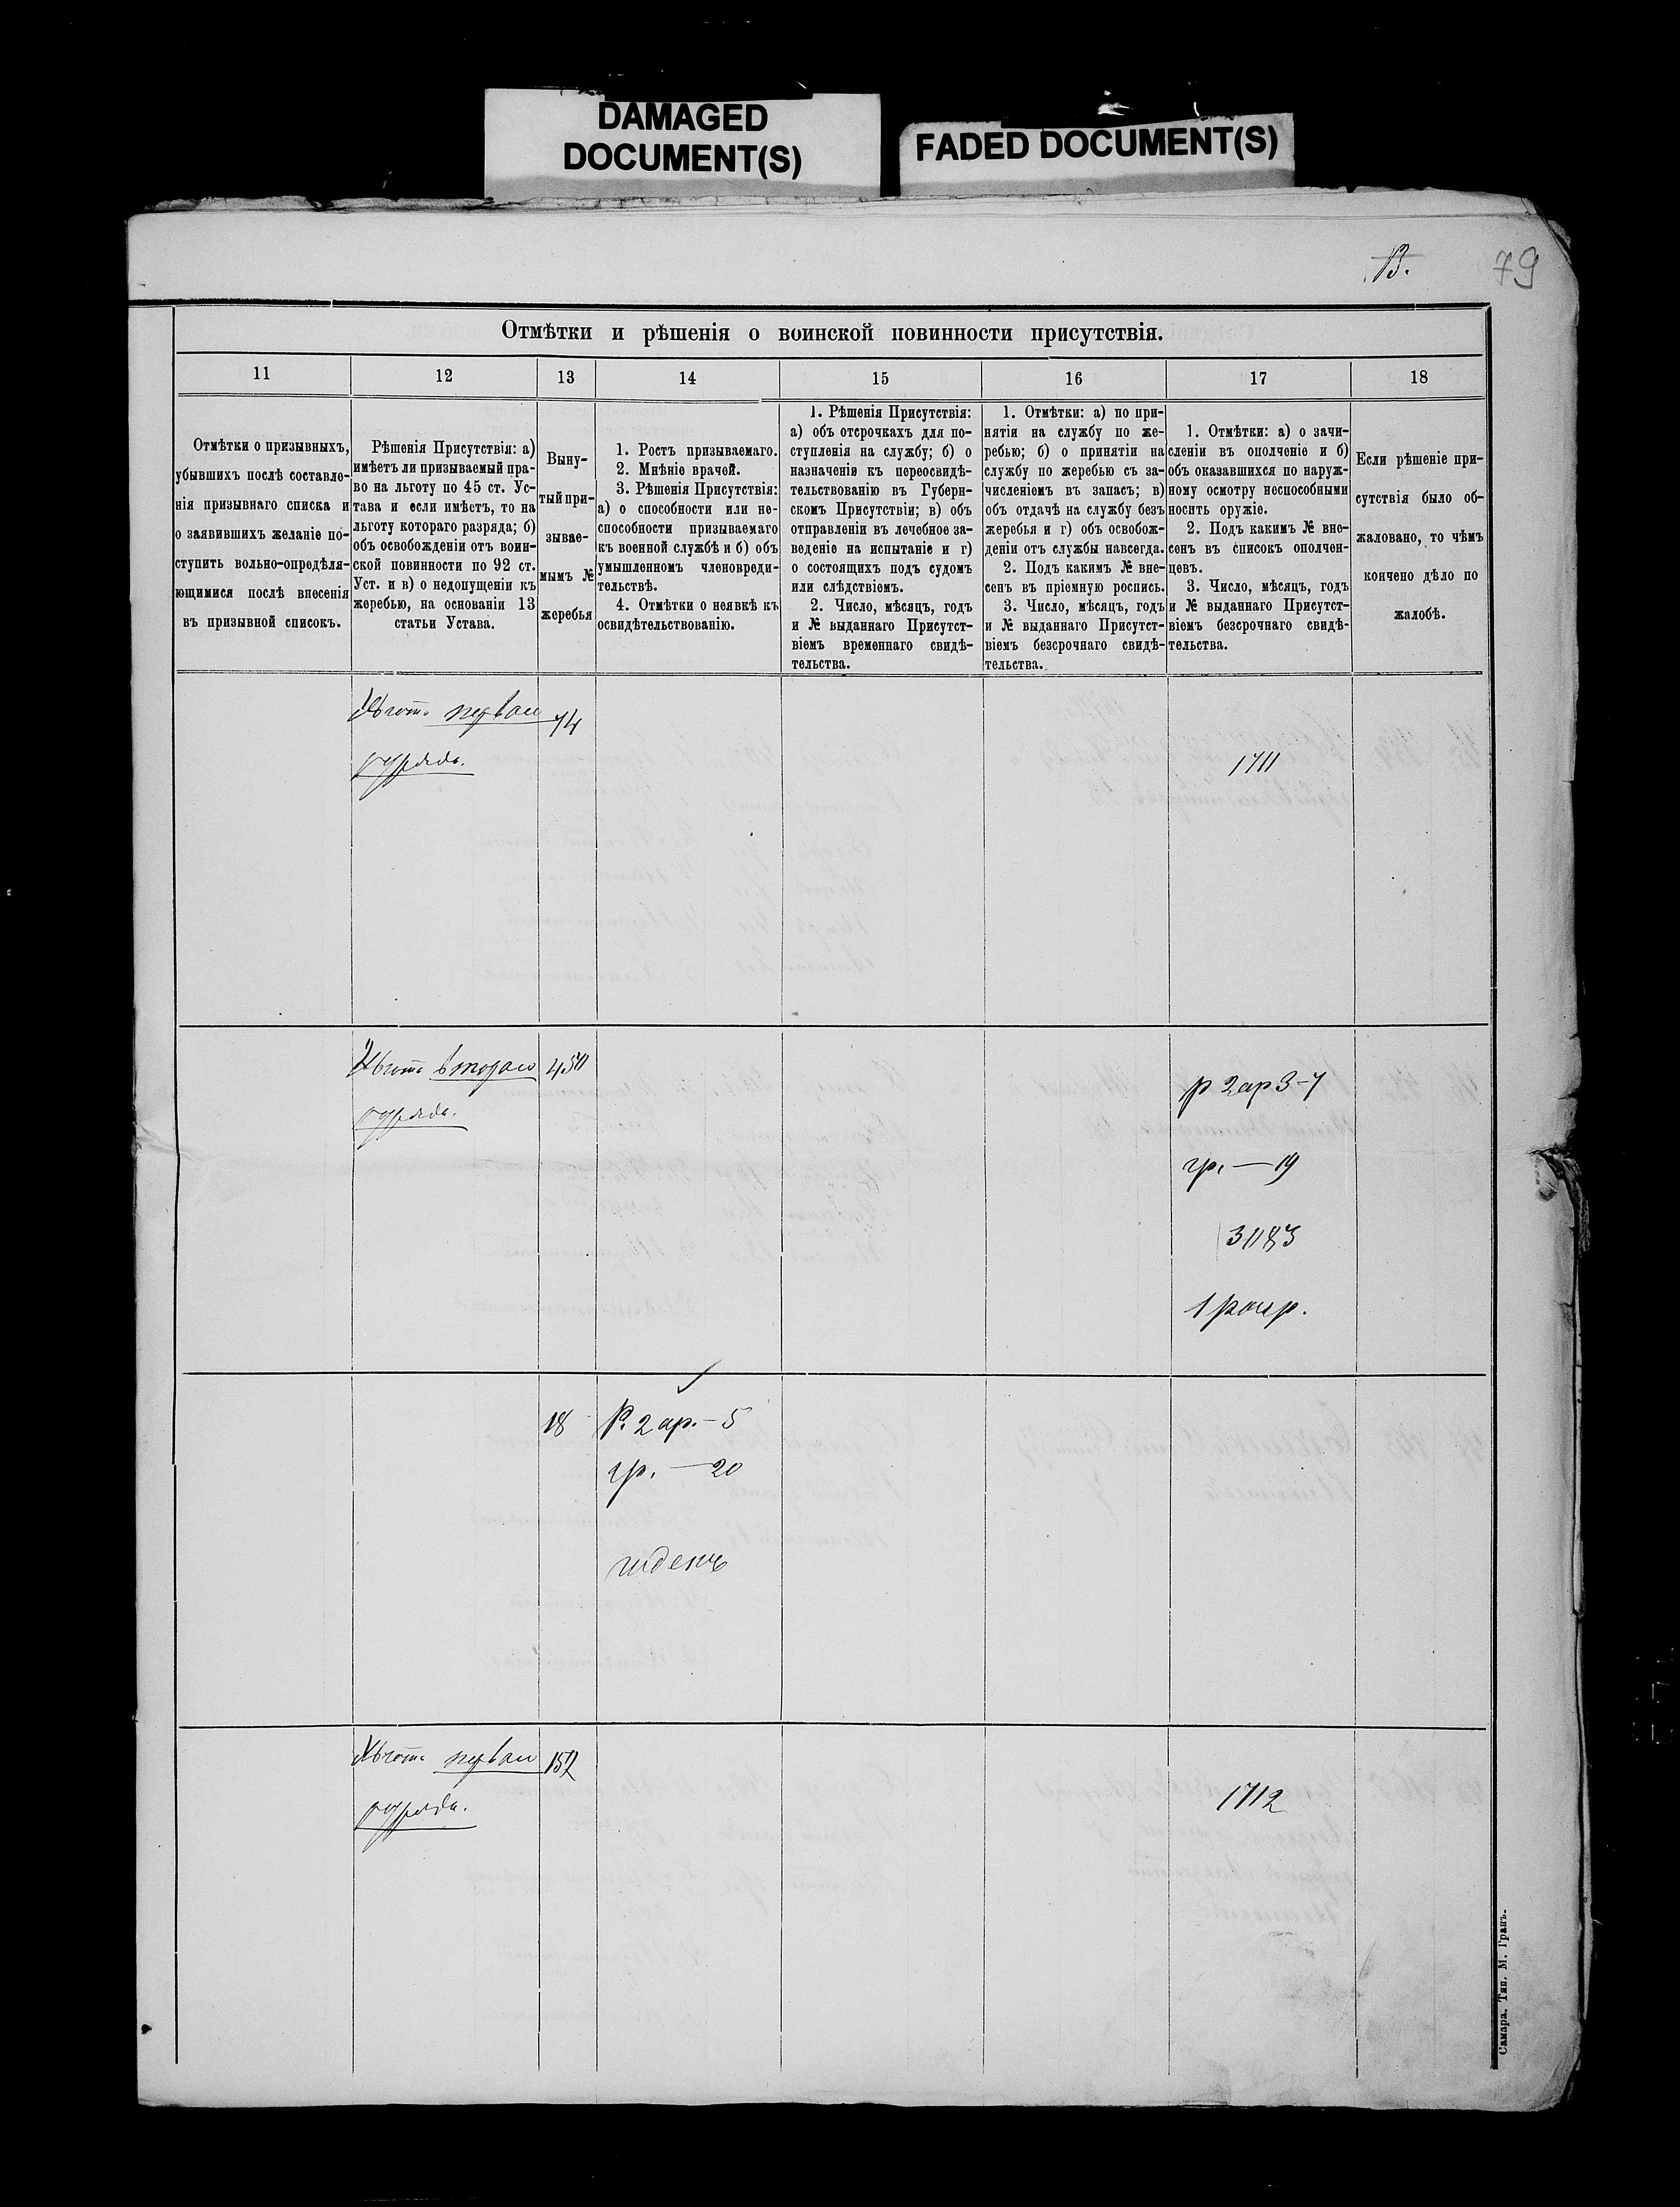 DAMAGED
DOCUMENT(S)
FADED DOCUMENT(S)
В.
79
Отмѣтки и рѣшенія о воинской повинности присутствія.
11 12 13 14 15 16 17 18
Отмѣтки о призывныхъ,
убывшихъ послѣ составле-
нія призывнаго списка и
о заявившихъ желаніе по-
ступить вольно-опредѣля-
ющимися послѣ внесенія
въ призывной списокъ.
Рѣшенія Присутствія: а)
имѣетъ ли призываемый пра-
во на льготу по 45 ст. Ус-
тава и если имѣетъ, то на
льготу котораго разряда; б)
объ освобожденіи отъ воин-
ской повинности по 92 ст.
Уст. и в) о недопущеніи къ
жеребью, на основаніи 13
статьи Устава.
Выну-
тый при-
зывае-
мымъ №
жеребья
1. Ростъ призываемаго.
2. Мнѣніе врачей.
3. Рѣшенія Присутствія:
а) о способности или не-
способности призываемаго
къ военной службѣ и б) объ
умышленномъ членовреди-
тельствѣ.
4. Отмѣтки о неявкѣ къ
освидѣтельствованію.
1. Рѣшенія Присутствія:
а) объ отсрочкахъ для по-
ступленія на службу; б) о
назначеніи къ переосвидѣ-
тельствованію въ Губерн-
скомъ Присутствіи; в) объ
отправленіи въ лечебное за-
веденіе на испытаніе и г)
о состоящихъ подъ судомъ
или слѣдствіемъ.
2. Число, мѣсяцъ, годъ
и № выданнаго Присутст-
віемъ временнаго свидѣ-
тельства.
1. Отмѣтки: а) по при-
нятіи на службу по же-
ребью; б) о принятіи на
службу по жеребью съ за-
численіемъ въ запасъ; в)
объ отдачѣ на службу безъ
жеребья и г) объ освобож-
деніи отъ службы навсегда.
2. Подъ какимъ № вне-
сенъ въ пріемную роспись.
3. Число, мѣсяцъ, годъ
и № выданнаго Присутст-
віемъ безсрочнаго свидѣ-
тельства.
1. Отмѣтки: а) о зачи-
сленіи въ ополченіе и б)
объ оказавшихся по наруж-
ному осмотру неспособными
носить оружіе.
2. Подъ какимъ № вне-
сенъ въ списокъ ополчен-
цевъ.
3. Число, мѣсяцъ, годъ
и № выданнаго Присутст-
віемъ безсрочнаго свидѣ-
тельства.
Если рѣшеніе при-
сутствія было об-
жаловано, то чѣмъ
кончено дѣло по
жалобѣ.
Льгота перваго 74
разряда.
1711
Льгота втораго
разряда.
р 2 ар 3-7
гр. — 19
1 разр.
18 Р. 2 ар. - 5
гр. — 20
годенъ
Льгота перваго 152
разряда.
1712
Самара. Тип. М. Гранъ.